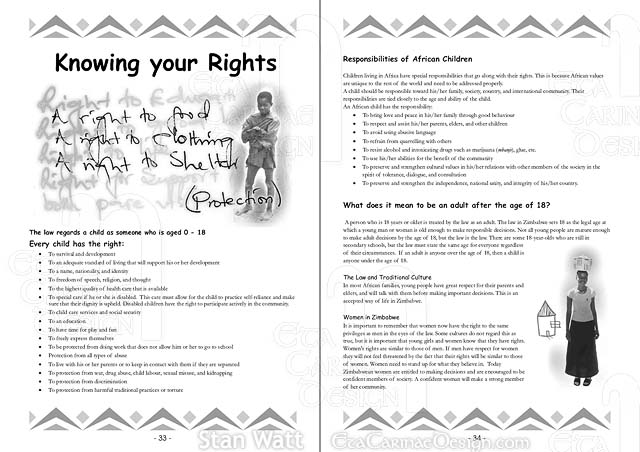 Knowing your Rights
Right to
A right to food
A right to Clothing
A right to Shelter
(Protection)
The law regards a child as someone who is aged 0 - 18
Every child has the right:
• To survival and development
• To an adequate standard of living that will support his or her development
• To a name, nationality, and identity
• To freedom of speech, religion, and thought
• To the highest quality of health care that is available
• To special care if he or she is disabled. This care must allow for the child to practice self-reliance and make
sure that their dignity is upheld. Disabled children have the right to participate actively in the community.
• To child care services and social security
• To an education.
• To have time for play and fun
• To freely express themselves
• To be protected from doing work that does not allow him or her to go to school
• Protection from all types of abuse
• To live with his or her parents or to keep in contact with them if they are separated
• To protection from war, drug abuse, child labour, sexual misuse, and kidnapping
• To protection from discrimination
• To protection from harmful traditional practices or torture
- 33 -
Responsibilities of African Children
Children living in Africa have special responsibilities that go along with their rights. This is because African values
are unique to the rest of the world and need to be addressed properly.
A child should be responsible toward his/her family, society, country, and international community. Their
responsibilities are tied closely to the age and ability of the child.
An African child has the responsibility:
• To bring love and peace in his/her family through good behaviour
• To respect and assist his/her parents, elders, and other children
• To avoid using abusive language
• To refrain from quarrelling with others
• To resist alcohol and intoxicating drugs such as marijuana (mbanje), glue, etc.
• To use his/her abilities for the benefit of the community
• To preserve and strengthen cultural values in his/her relations with other members of the society in the
spirit of tolerance, dialogue, and consultation
• To preserve and strengthen the independence, national unity, and integrity of his/her country.
What does it mean to be an adult after the age of 18?
A person who is 18 years or older is treated by the law as an adult. The law in Zimbabwe sets 18 as the legal age at
which a young man or woman is old enough to make responsible decisions. Not all young people are mature enough
to make adult decisions by the age of 18, but the law is the law. There are some 18-year-olds who are still in
secondary schools, but the law must state the same age for everyone regardless
of their circumstances. If an adult is anyone over the age of 18, then a child is
anyone under the age of 18.
The Law and Traditional Culture
In most African families, young people have great respect for their parents and
elders, and will talk with them before making important decisions. This is an
accepted way of life in Zimbabwe.
Women in Zimbabwe
It is important to remember that women now have the right to the same
privileges as men in the eyes of the law. Some cultures do not regard this as
true, but it is important that young girls and women know that they have rights.
Women's rights are similar to those of men. If men have respect for women
they will not feel threatened by the fact that their rights will be similar to those
of women. Women need to stand up for what they believe in. Today
Zimbabwean women are entitled to making decisions and are encouraged to be
confident members of society. A confident woman will make a strong member
of her community.
- 34 -
Stan Watt
EtaCarinaeDesign.com